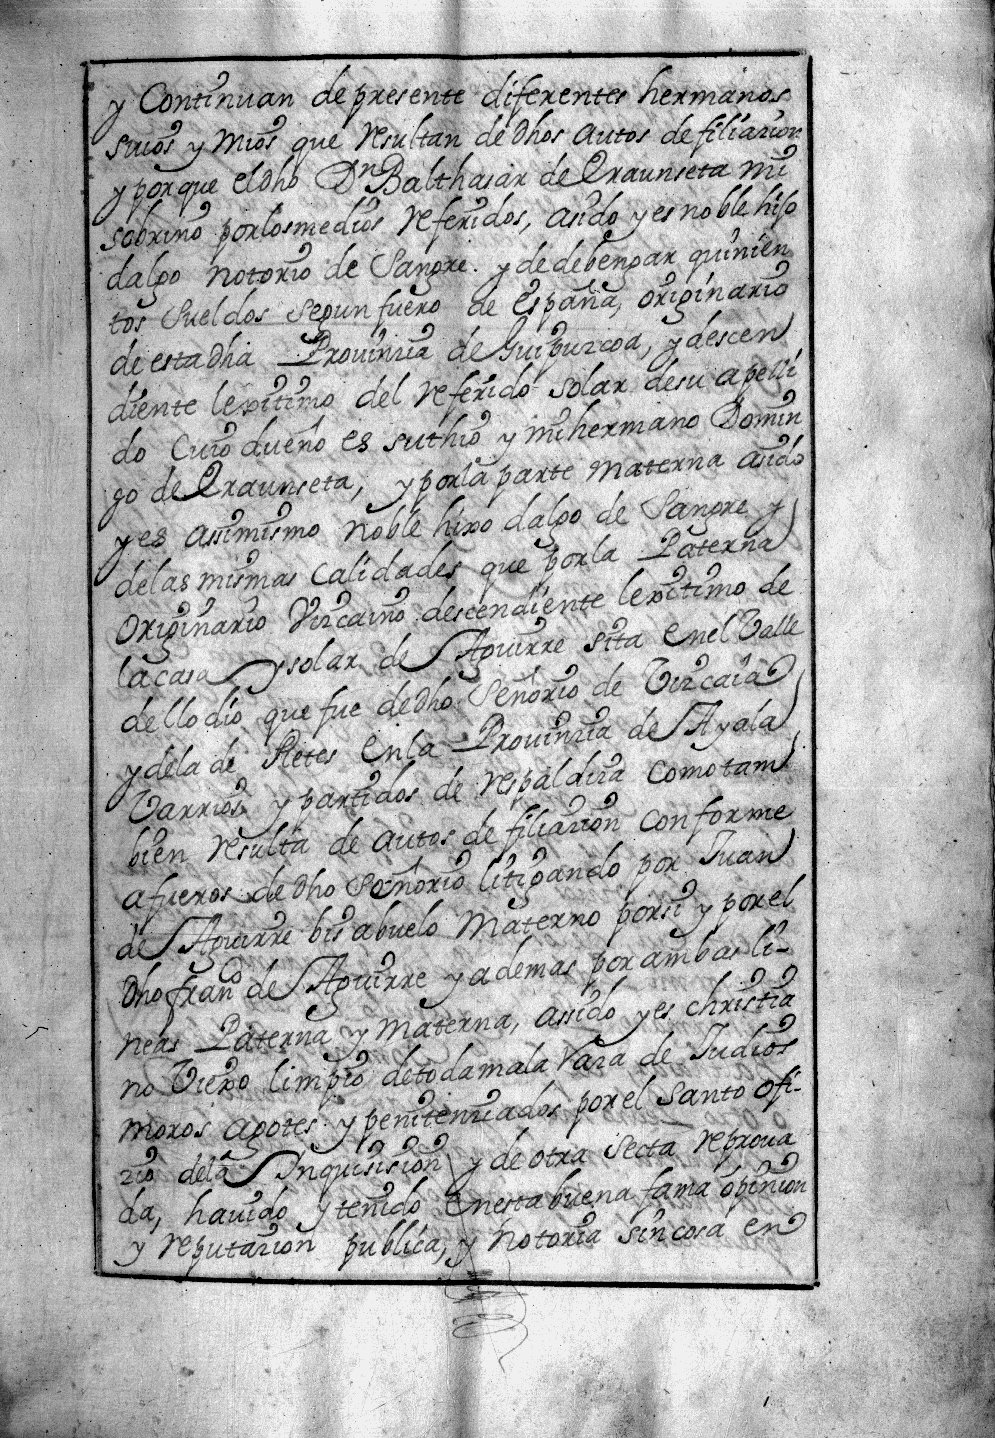 y Continuan de presente diferentes hermanos
suios y mios que resultan de dhos autos de filiazion
y porque el dho Dn Balthasar de Oraunseta mi
sobrino por los medios referidos, asido y es noble hijo
dalgo notorio de Sangre. y de debengar quinien
tos sueldos segun fuero de españa, originario
de esta dha Prouinzia de Guipuzcoa, y descen
diente lexitimo del referido solar de su apelli
do Cuio dueño es su thio y mi hermano Domin
go de Oraunseta, y por la parte materna asido
y es assimismo noble hixo dalgo de Sangre y
de las mismas calidades que por la Paterna
Originario Vizcaino descendiente lexitimo de
la casa y solar de Aguirre sita en el Valle
de llodio que fue de dho Señorio de Vizcaia
y de la de Retes en la Prouinzia de Ayala
Varrios y partidos de respaldiza como tam
bien resulta de autos de filiazion conforme
a fueros de dho Señorio litigando por Juan
de Aguirre bisabuelo Materno por si y por el
Dho franco de Aguirre y ademas por ambas li-
neas Paterna y materna, assido y es christia
no Viexo limpio de toda mala raza de Judios
moros agotes y penitenziados por el Santo ofi-
zio de la Inquisision y de otra secta reproua
da, hauido y tenido en esta buena fama opinion
y reputazion publica, y notoria sin cosa en